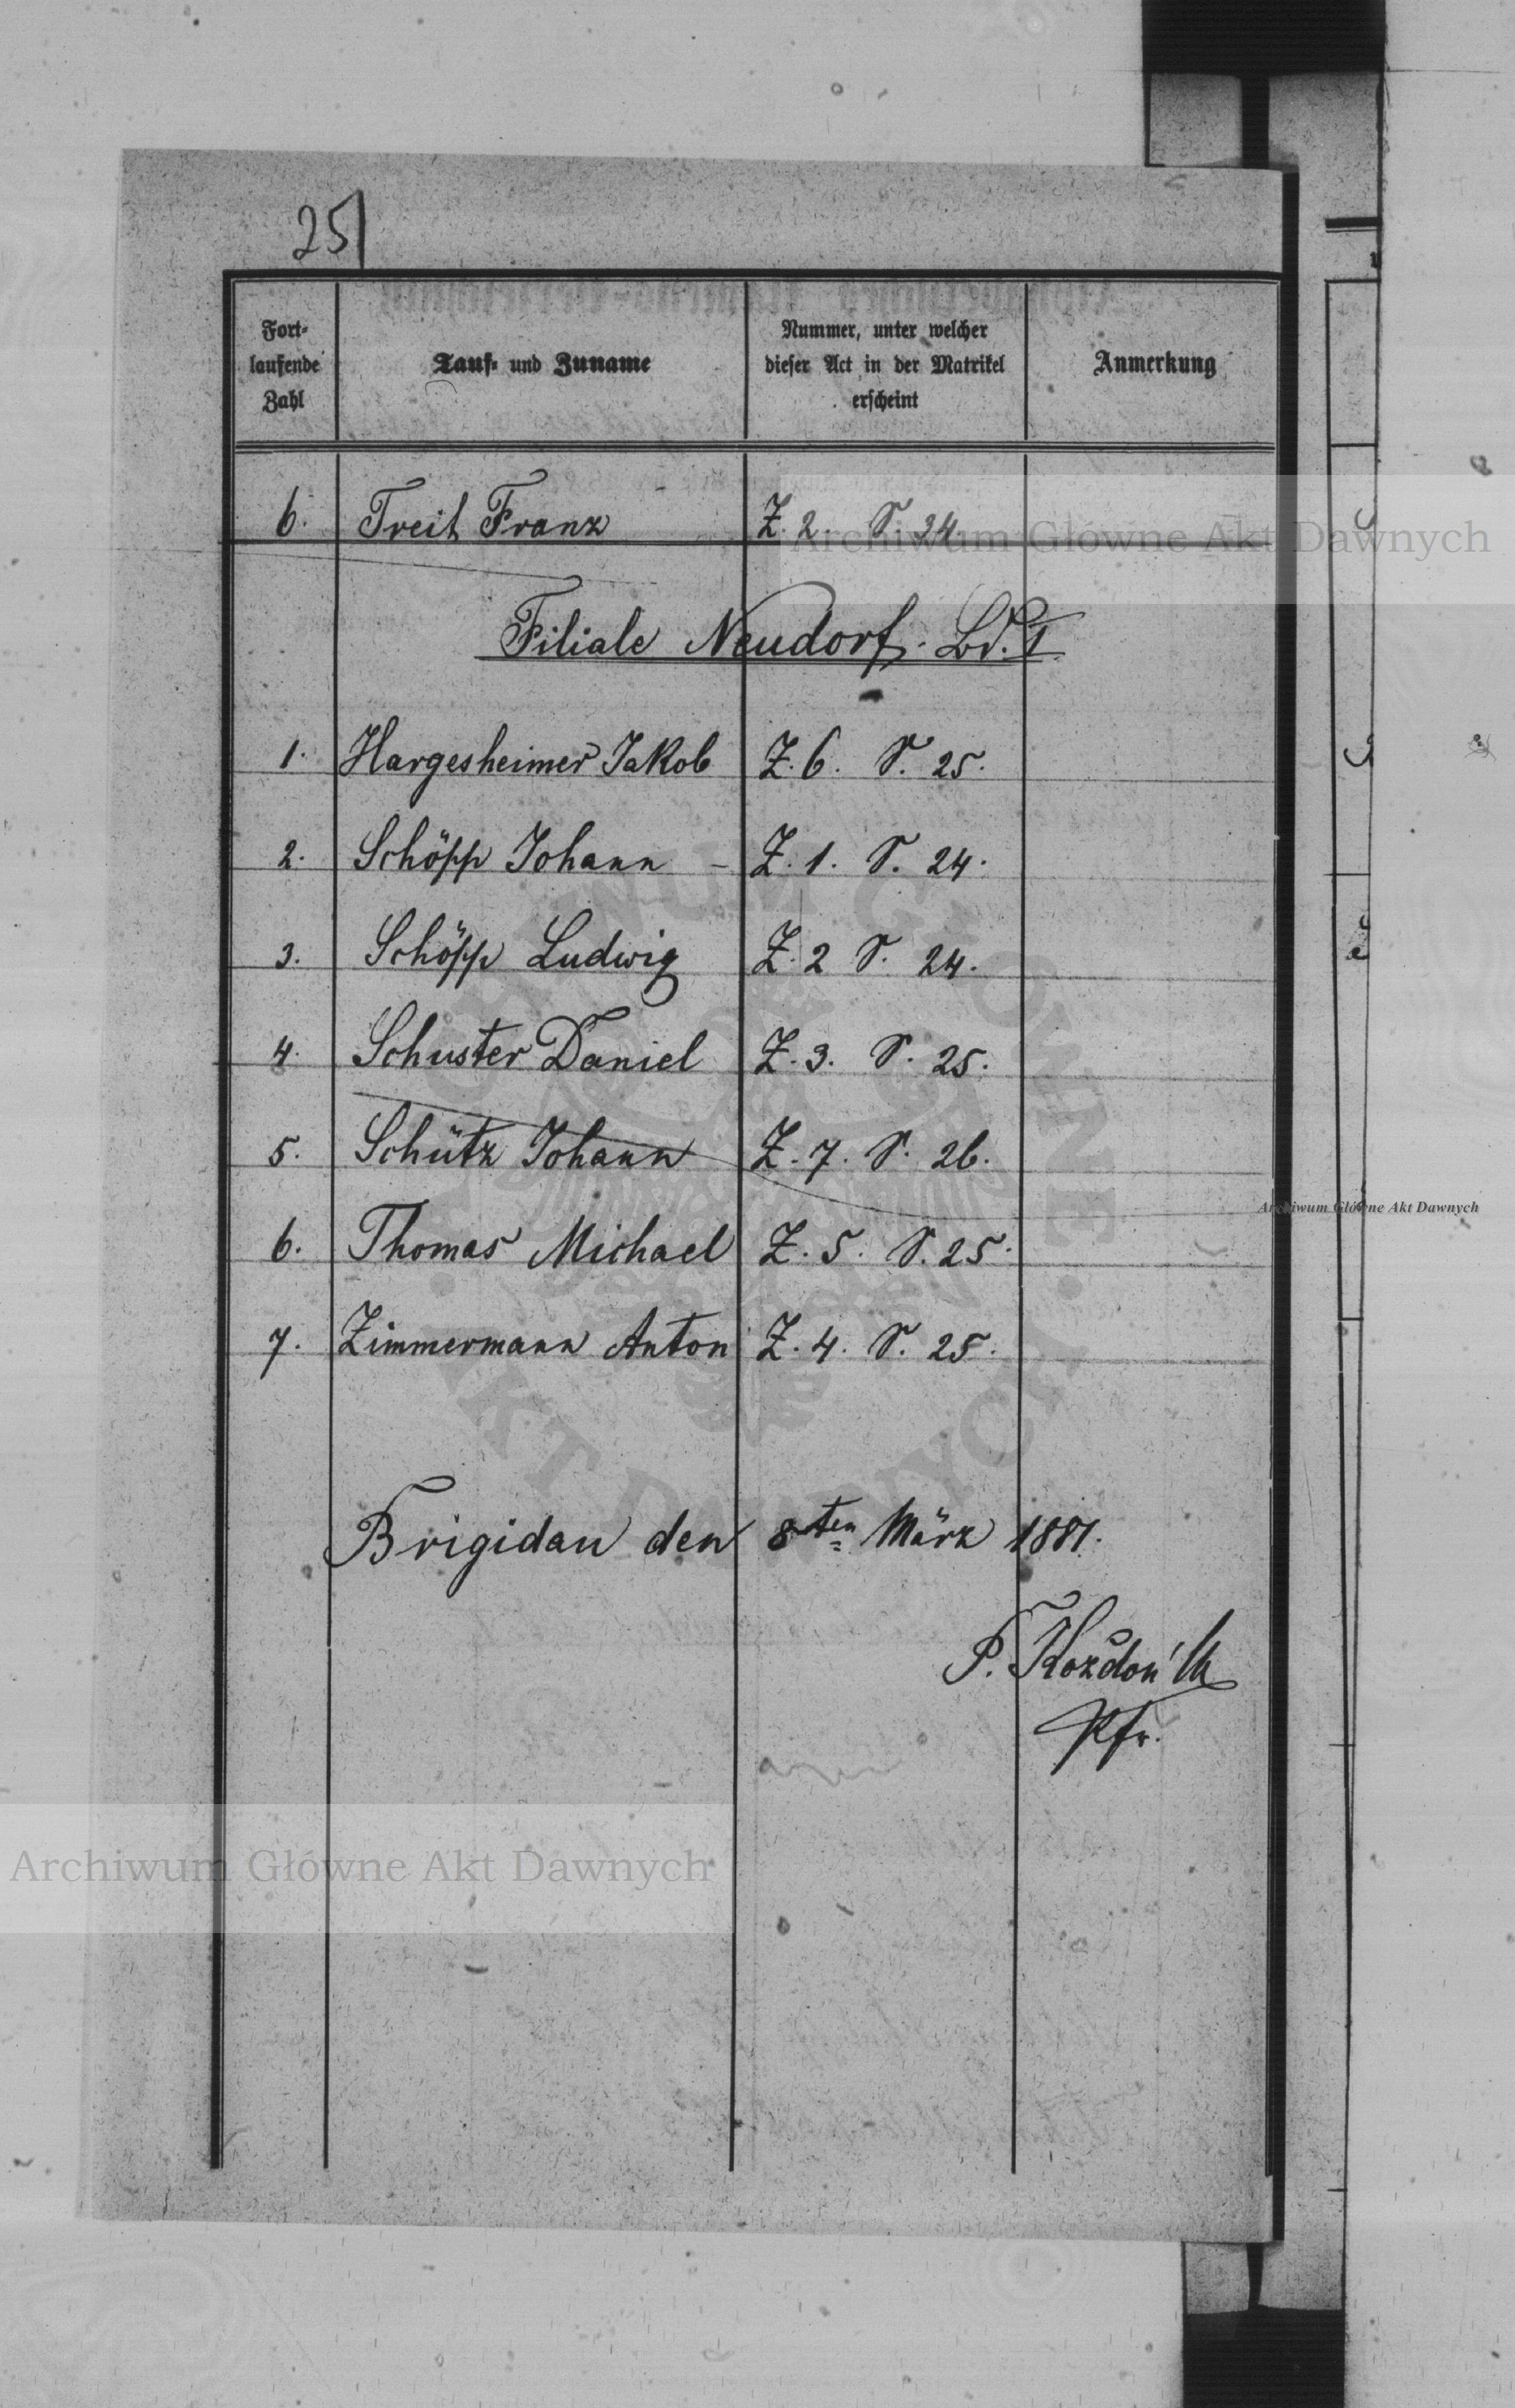 25
Fort-
laufende
Zahl
Tauf- und Zuname
Nummer, unter welcher
dieser Act in der Matrikel
erscheint
Anmerkung
6. Treit Franz Z. 2. S. 24.
Filiale Neudorf. Bd. I
1. Hargesheimer Jakob Z. 6. S. 25.
2. Schöpp Johann – Z. 1. S. 24.
3. Schöpp Ludwig Z. 2 S. 24.
4. Schuster Daniel Z. 3. S. 25.
5. Schütz Johann Z. 7. S. 26.
6. Thomas Michael Z. 5. S. 25.
7. Zimmermann Anton Z. 4. S. 25.
Brigidau den 8ten März 1881.
P. Kozdoń
Pfr.
Archiwum Główne Akt Dawnych
Archiwum Główne Akt Dawnych
Archiwum Główne Akt Dawnych
ARCHIWUM GŁÓWNE AKT DAWNYCH